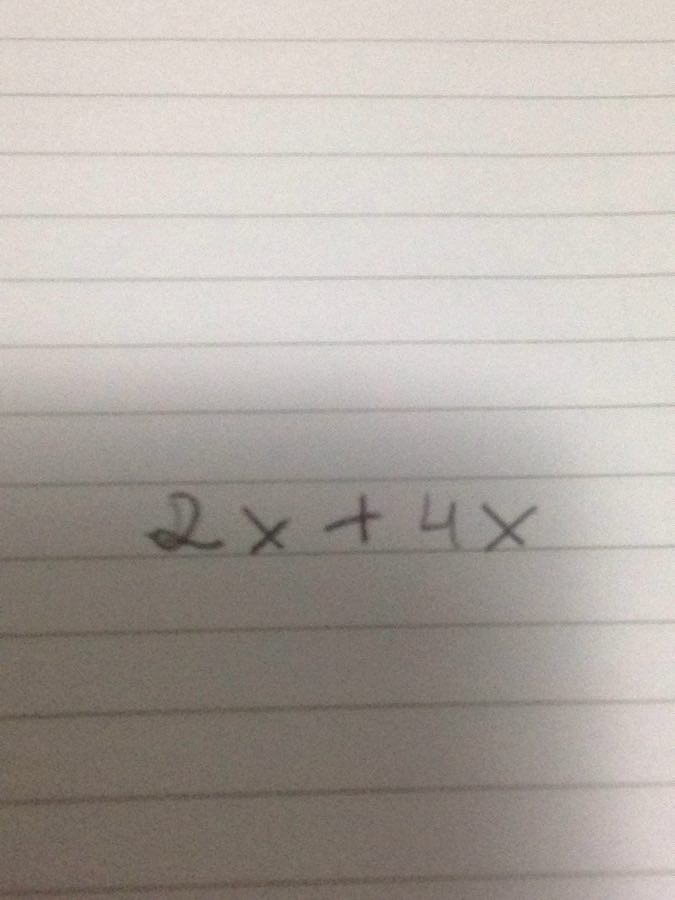 2x + 4x